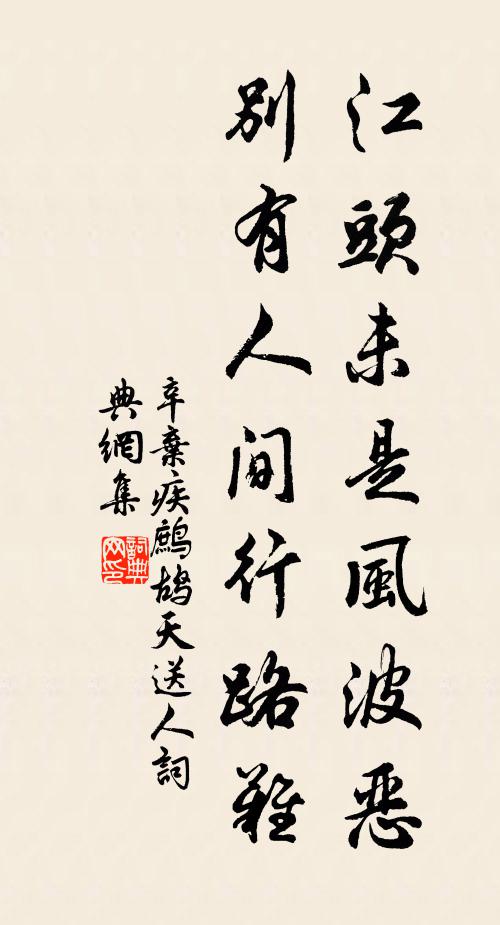 江頭未是風波惡
別有人間行路難
辛棄疾鷓鴣天送人詞
典網集
詞典网印